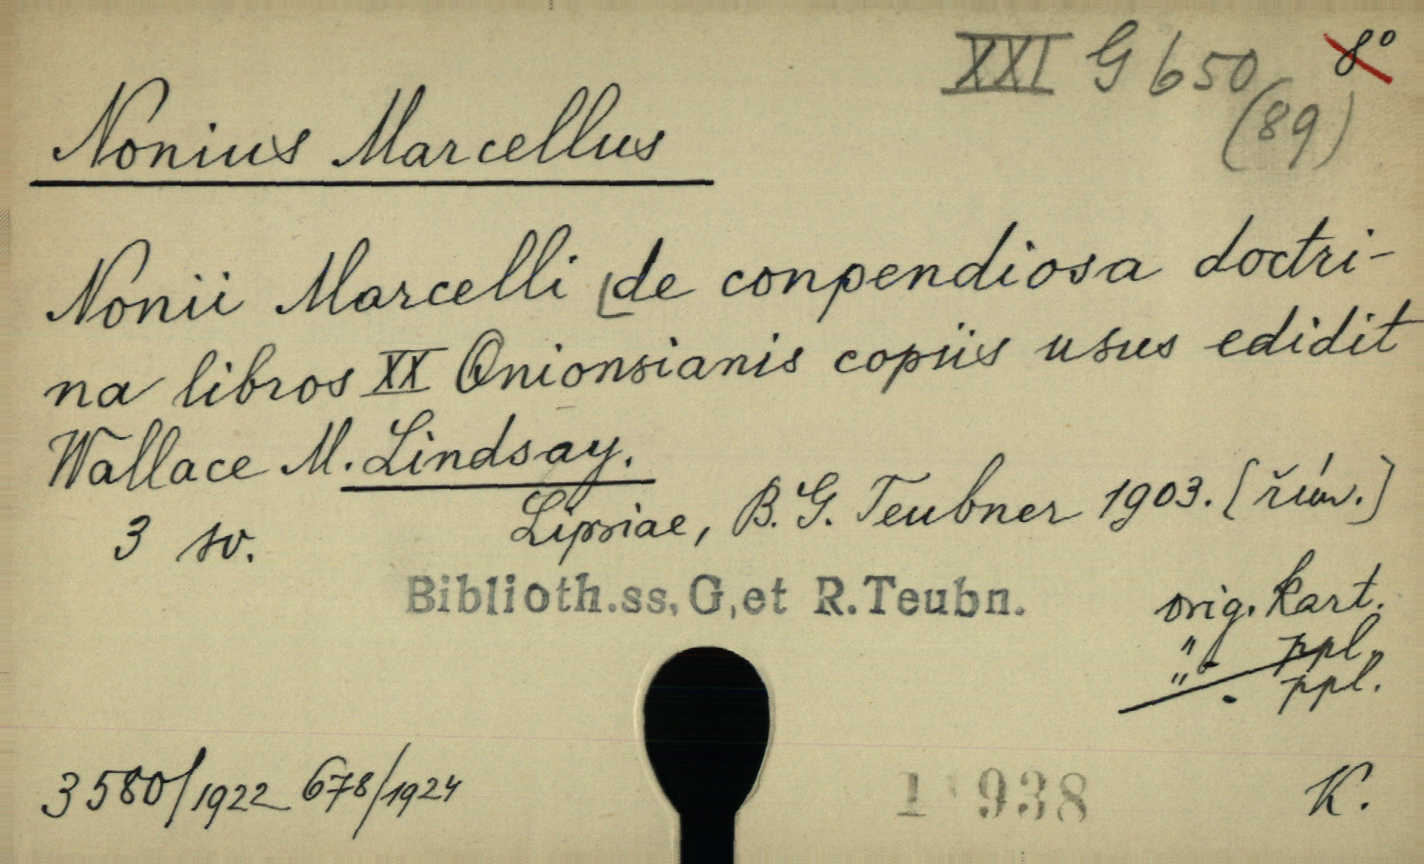 XXI G 650 8°
(89)
Nonius Marcellus
Nonii Marcelli [de conpendiosa doctri-
na libros XX Onionsianis copiis usus edidit
Wallace M. Lindsay.
Lipsiae, B. G. Teubner 1903. [řím.]
3 sv.
Biblioth.ss, G, et R.Teubn.
orig. kart.
" - ppl.
" - ppl.
3580/1922 678/1924
1 938
K.